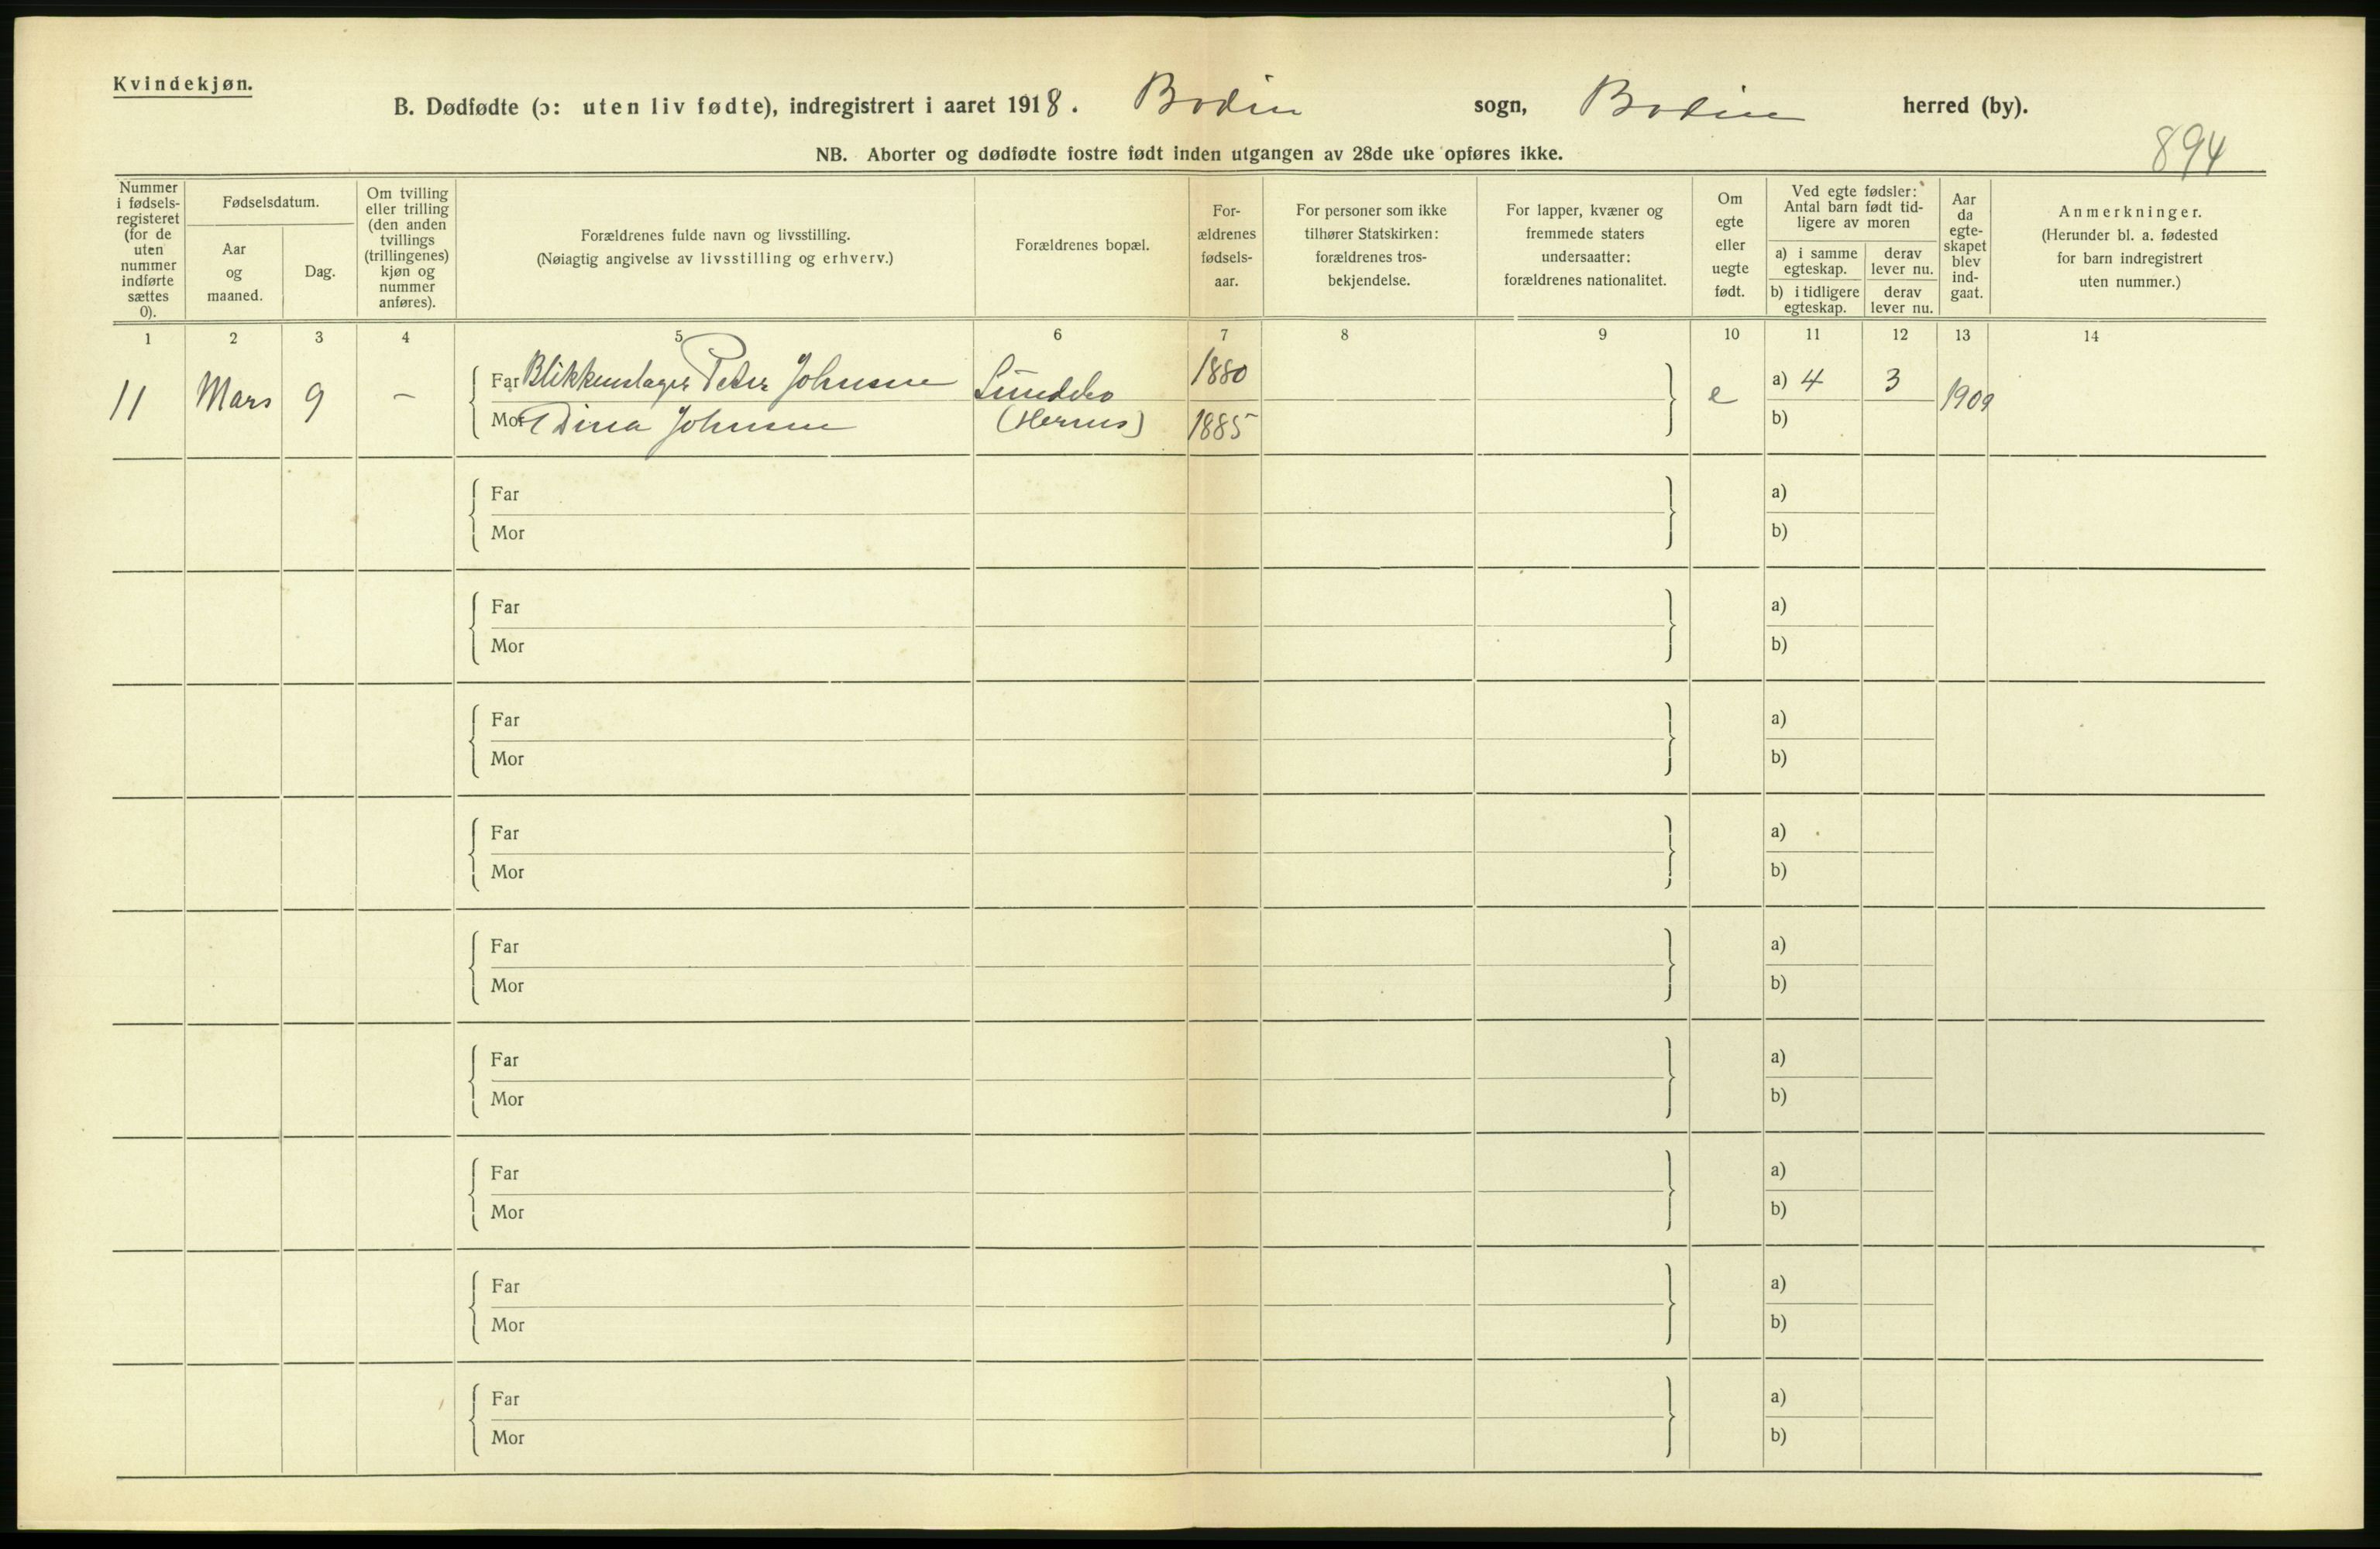 Kvindekjøn.
B. Dødfødte (ɔ: uten liv fødte), indregistrert i aaret 1918. Bodin sogn, Bodin herred (by).
NB. Aborter og dødfødte fostre født inden utgangen av 28de uke opføres ikke.
894
Nummer i fødsels-registeret (for de uten nummer indførte sættes 0).
Fødselsdatum.
Aar og maaned.
Dag.
Om tvilling eller trilling (den anden tvillings (trillingenes) kjøn og nummer anføres).
Forældrenes fulde navn og livsstilling.
(Nøiagtig angivelse av livsstilling og erhverv.)
Forældrenes bopæl.
For-ældrenes fødsels-aar.
For personer som ikke tilhører Statskirken: forældrenes tros-bekjendelse.
For lapper, kvæner og fremmede staters undersaatter: forældrenes nationalitet.
Om egte eller uegte født.
Ved egte fødsler: Antal barn født tid-ligere av moren
a) i samme egteskap.
derav lever nu.
b) i tidligere egteskap.
derav lever nu.
Aar da egte-skapet blev ind-gaat.
Anmerkninger.
(Herunder bl. a. fødested for barn indregistrert uten nummer.)
1 2 3 4 5 6 7 8 9 10 11 12 13 14
11 Mars 9 – Far Blikkenslager Peter Johnsen 1880 e a) 4 3 1909
Mor Dina Johnsen 1885 b)
Far a)
Mor b)
Far a)
Mor b)
Far a)
Mor b)
Far a)
Mor b)
Far a)
Mor b)
Far a)
Mor b)
Far a)
Mor b)
Far a)
Mor b)
Far a)
Mor b)